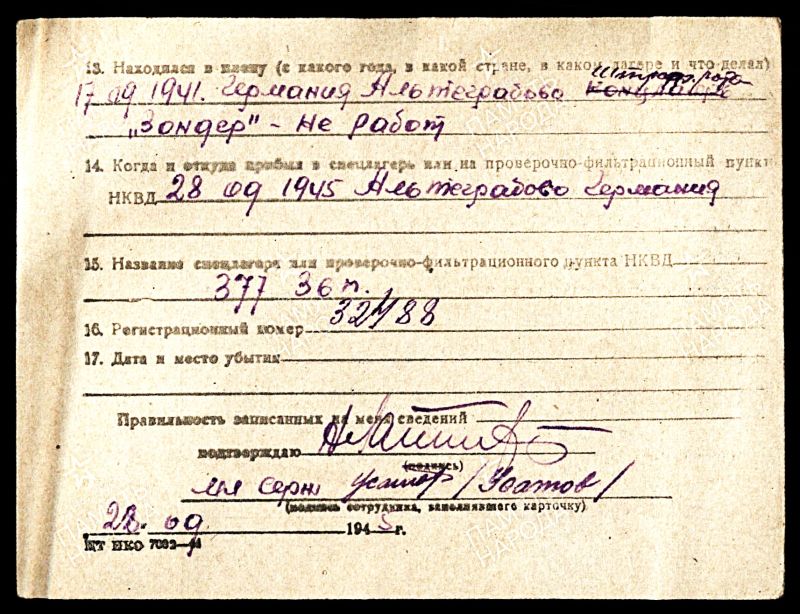 13. Находился в плену (с какого года, в какой стране, в каком лагере и что делал)
Штраф. рота
17 09 1941. Германия Альтеграбово концлагерь
„Зондер" - не работ
14. Когда и откуда прибыл в спецлагерь или на проверочно-фильтрационный пункт
НКВД 28 09 1945 Альтеграбово Германия
15. Название спецлагеря или проверочно-фильтрационного пункта НКВД
377 зсп.
16. Регистрационный номер 32488
17. Дата и место убытия
Правильность записанных на меня сведений
подтверждаю
(подпись)
мл серж /Усатов/
(подпись сотрудника, заполнявшего карточку)
28. 09 1945 г.
ЦТ НКО 7092—44
ПАМЯТЬ НАРОДА